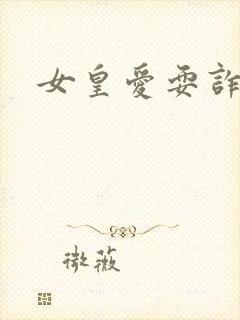 女皇愛耍詐
微薇